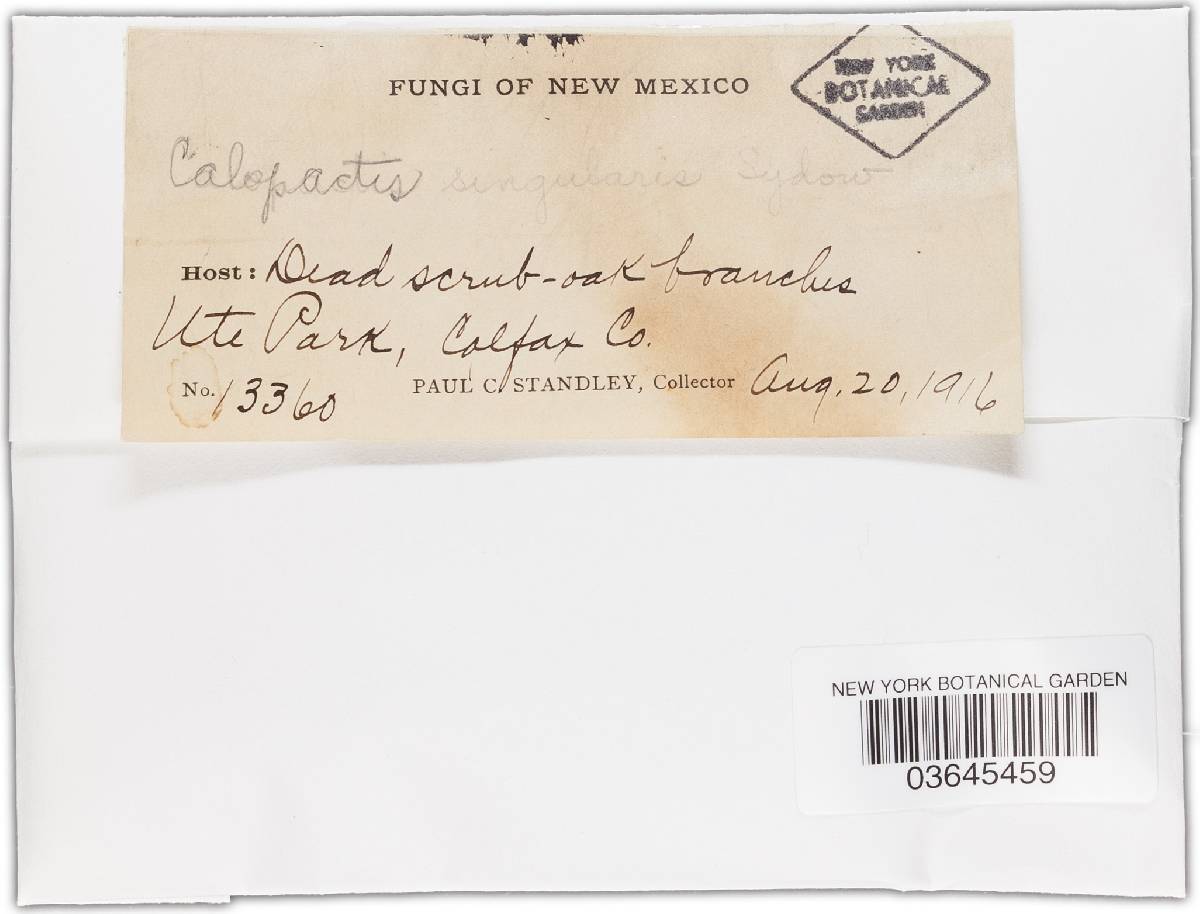 FUNGI OF NEW MEXICO
NEW YORK
BOTANICAL
GARDEN
Calopactis singularis Sydow
Host: Dead scrub-oak branches
Ute Park, Colfax Co.
No. 13360 PAUL C. STANDLEY, Collector Aug. 20, 1916
NEW YORK BOTANICAL GARDEN
03645459